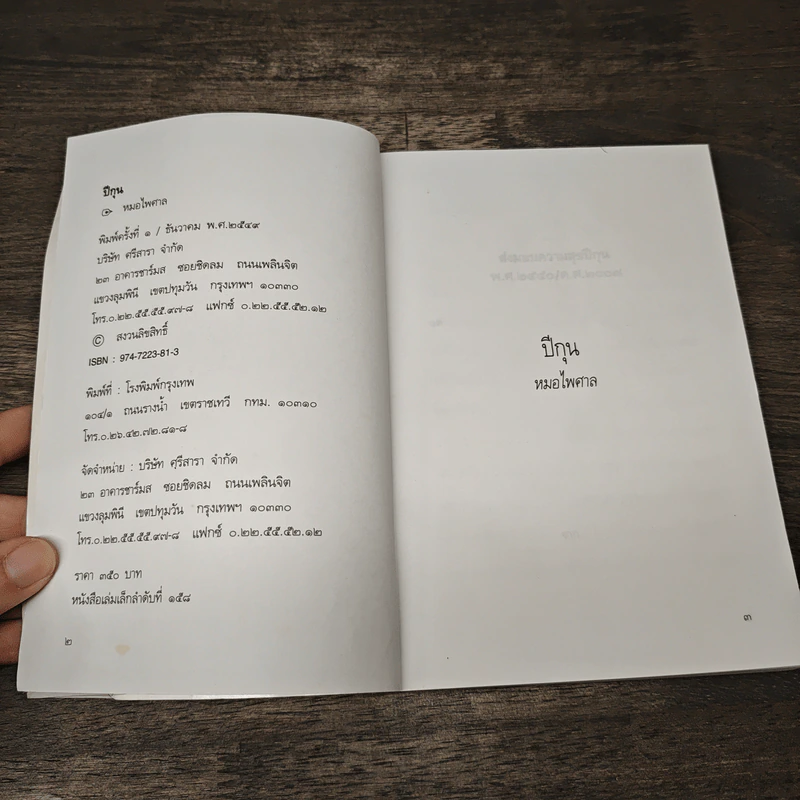 ปีกุน
หมอไพศาล
พิมพ์ครั้งที่ ๑ / ธันวาคม พ.ศ.๒๕๔๙
บริษัท ศรีสารา จำกัด
๒๓ อาคารชาร์มส ซอยชิดลม ถนนเพลินจิต
แขวงลุมพินี เขตปทุมวัน กรุงเทพฯ ๑๐๓๓๐
โทร.๐.๒๒.๕๕.๕๕.๙๗-๘ แฟกซ์ ๐.๒๒.๕๕.๕๒.๑๒
© สงวนลิขสิทธิ์
ISBN : 974-7223-81-3
พิมพ์ที่ : โรงพิมพ์กรุงเทพ
๑๐๔/๑ ถนนรางน้ำ เขตราชเทวี กทม. ๑๐๓๑๐
โทร.๐.๒๖.๔๒.๗๒.๘๑-๘
จัดจำหน่าย : บริษัท ศรีสารา จำกัด
๒๓ อาคารชาร์มส ซอยชิดลม ถนนเพลินจิต
แขวงลุมพินี เขตปทุมวัน กรุงเทพฯ ๑๐๓๓๐
โทร.๐.๒๒.๕๕.๕๕.๙๗-๘ แฟกซ์ ๐.๒๒.๕๕.๕๒.๑๒
ราคา ๓๕๐ บาท
หนังสือเล่มเล็กลำดับที่ ๑๕๘
๒
ปีกุน
หมอไพศาล
๓